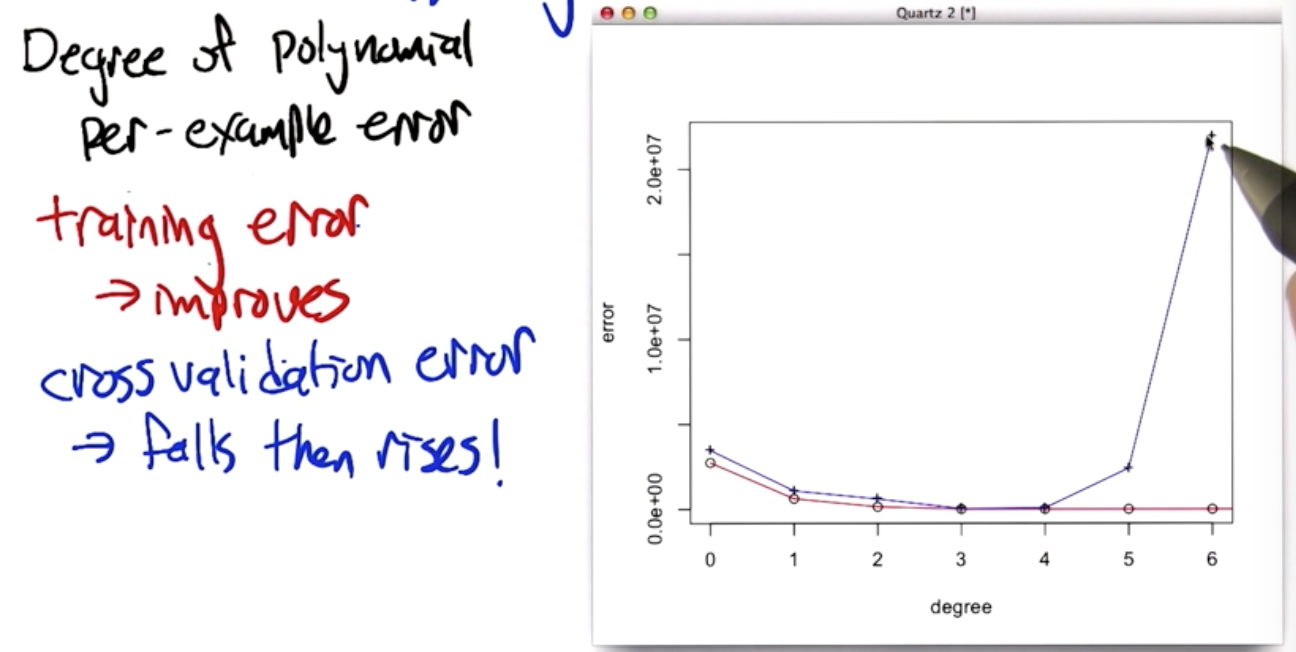 Degree of polynomial
per-example error
training error
→ improves
cross validation error
→ falls then rises!
Quartz 2 [*]
error
0.0e+00
1.0e+07
2.0e+07
0 1 2 3 4 5 6
degree